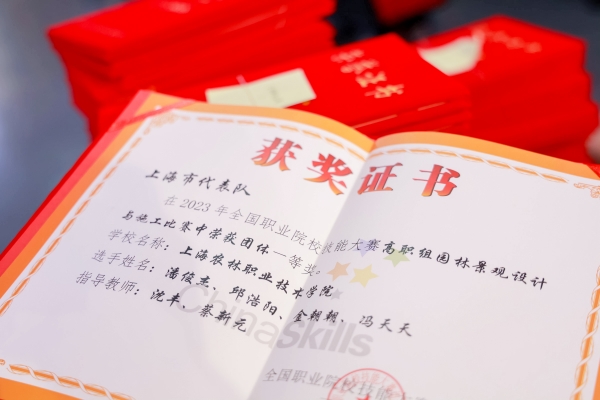 获奖证书
上海市代表队
在2023年全国职业院校技能大赛高职组园林景观设计
与施工比赛中荣获团体一等奖。
学校名称：上海农林职业技术学院
选手姓名：潘俊杰、邱浩阳、金朝朝、冯天天
指导教师：沈丰、蔡新元
ChinaSkills
全国职业院校技能